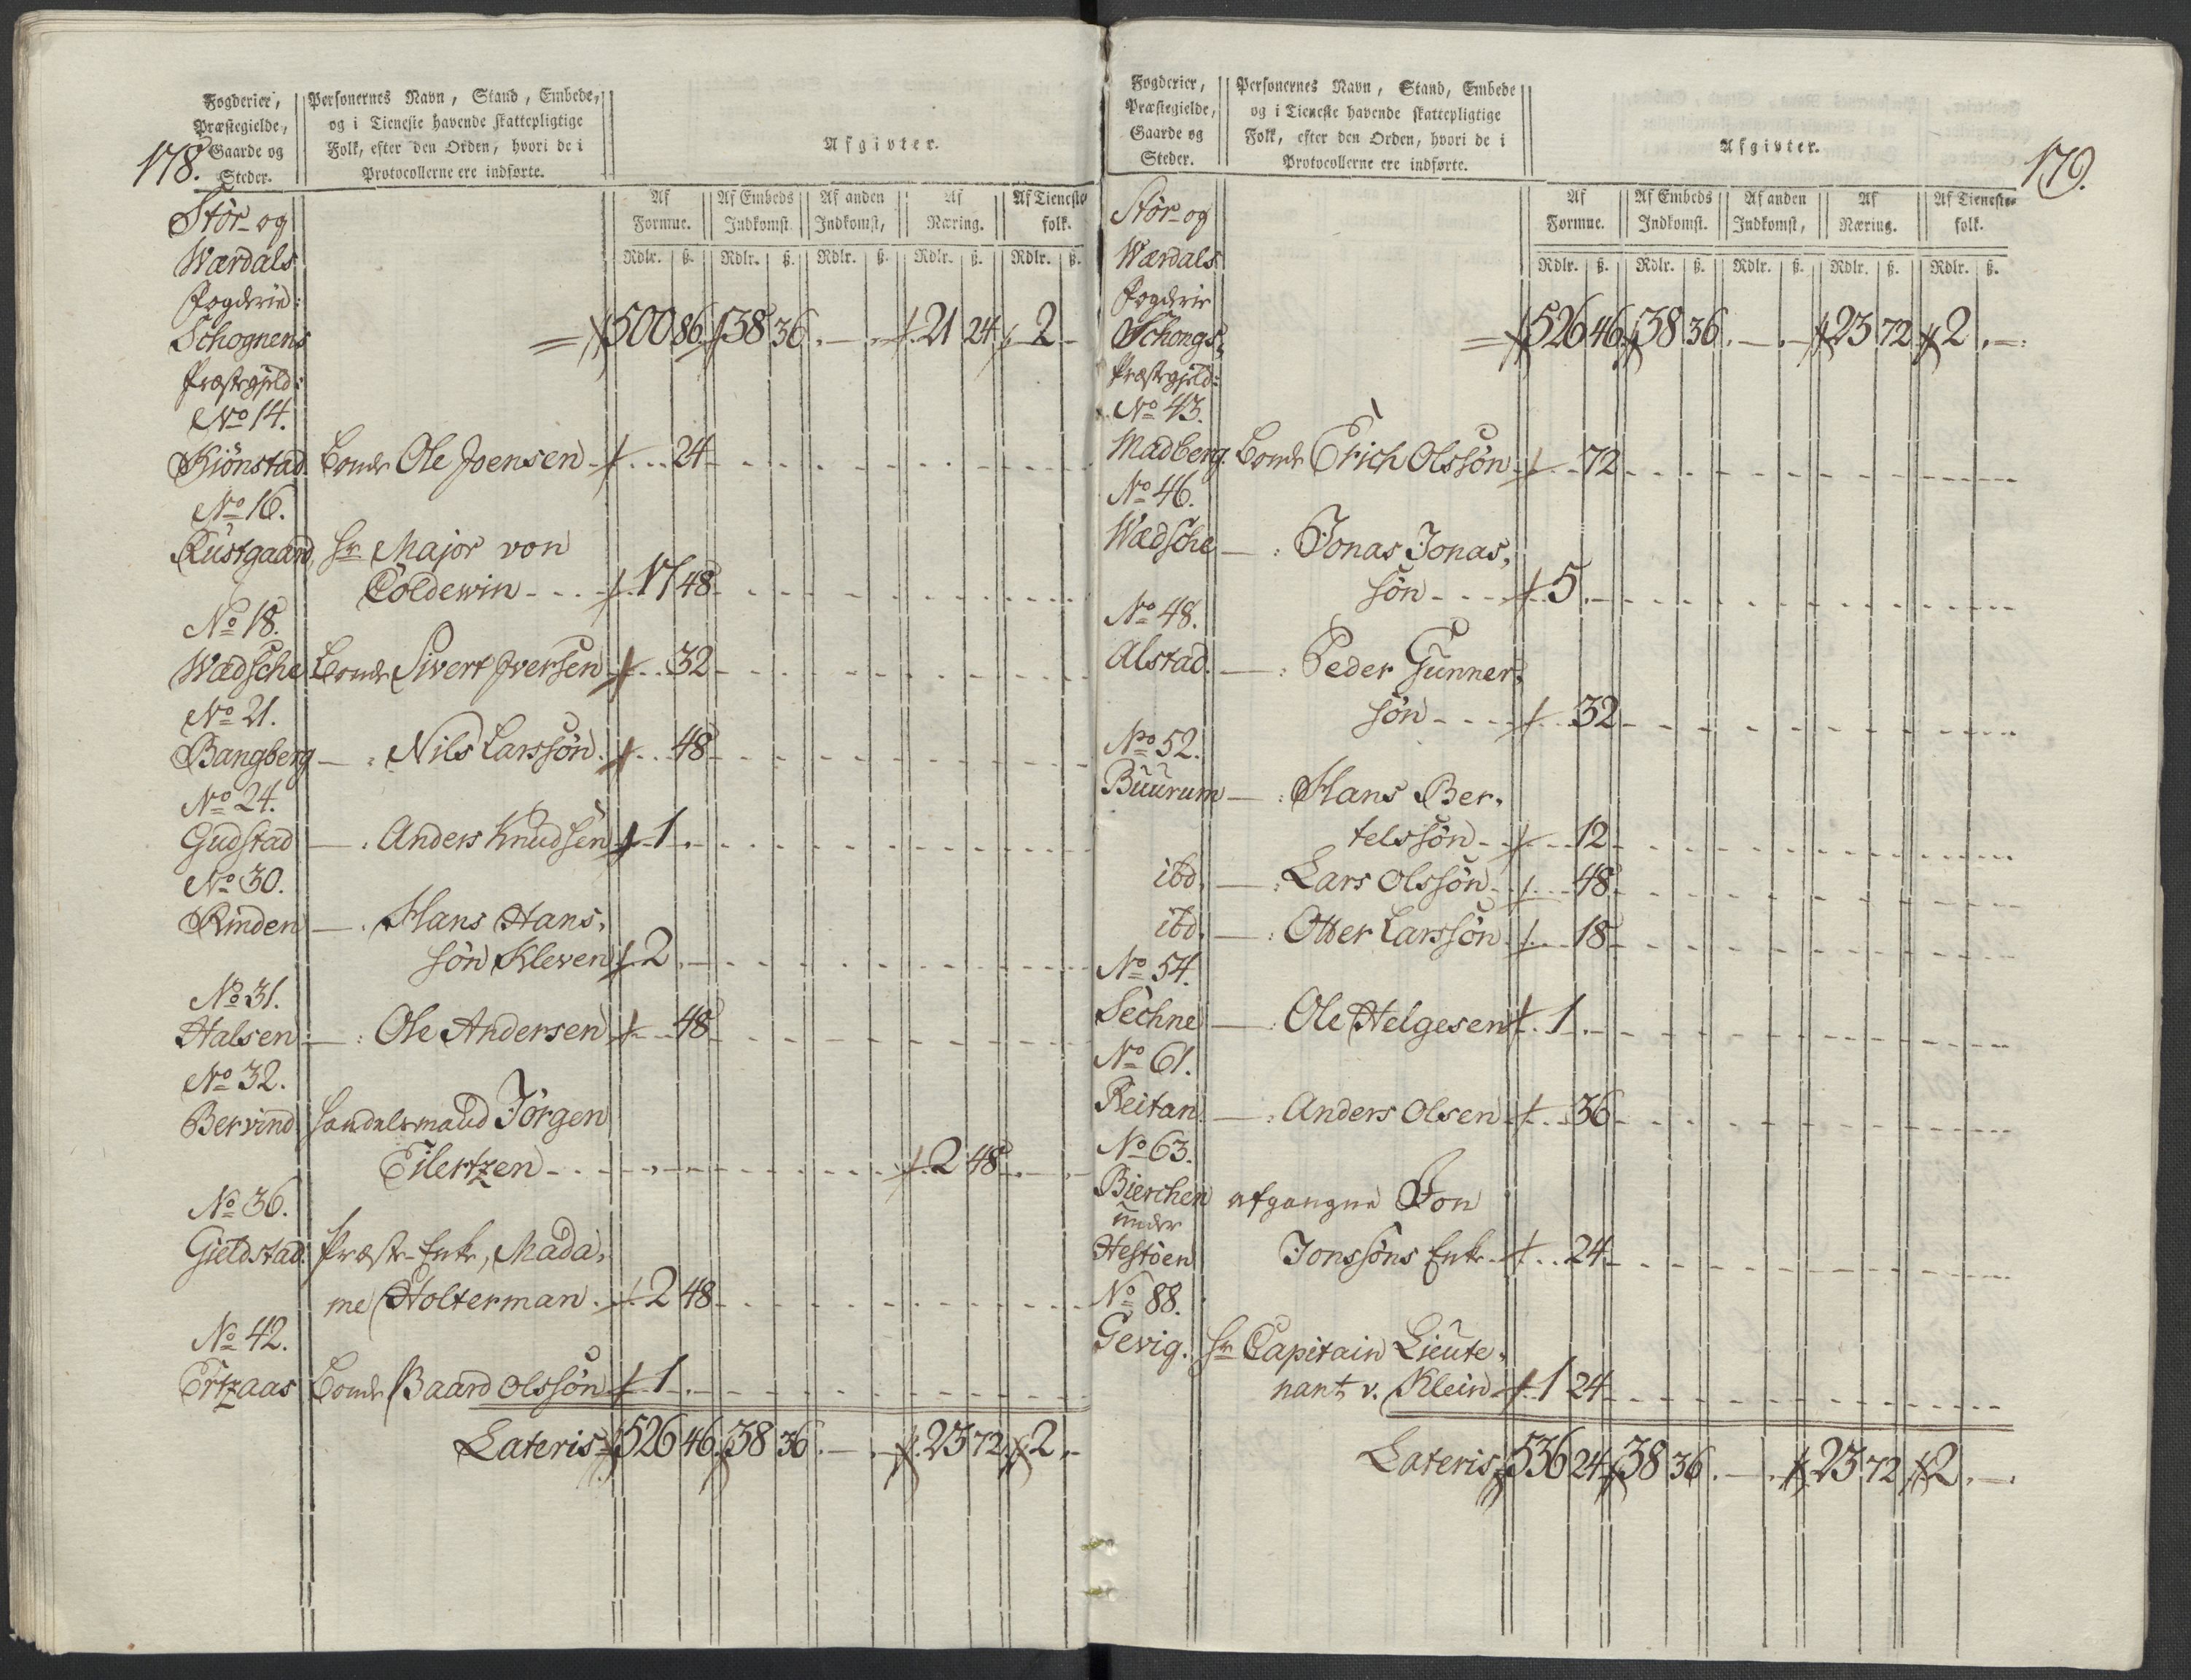 178.
Fogderier, Præstegielde, Gaarde og Steder.
Personernes Navn, Stand, Embede, og i Tieneste havende skattepligtige Folk, efter den Orden, hvori de i Protocollerne ere indførte.
Afgivter.
Af Formue. Af Embeds Indkomst. Af anden Indkomst, Af Næring. Af Tieneste folk.
Rdlr. ß. Rdlr. ß. Rdlr. ß. Rdlr. ß. Rdlr. ß.
Stör- og
Wærdals
Fogderie:
Schognens = 500 86 38 36 . — . 21 24 2 -
Præstegjeld:
No 14.
Kiönstad Bonde Ole Joensen - 24
No 16.
Rustgaard, Hr Major von
Coldewin - - - 17 48
No 18.
Wædsche Bonde Sivert Iversen 32
No 21.
Bangberg — : Nils Larssön. 48
No 24.
Gudstad — : Anders Knudsen 1 . -
No 30.
Rinden — . Hans Hans,
sön Kleven 2 . -
No 31.
Halsen — : Ole Andersen 48
No 32.
Bervind Handelsmand Jörgen
Eilertzen - - - 2 48
No 36.
Gieldstad. Præste-Enke, Mada,
me Holterman. 2 48
No 42.
Ertzaas Bonde Baard Olssön 1 . -
Lateris 526 46 38 36 . — . 23 72 2 . -
179.
Fogderier, Præstegielde, Gaarde og Steder.
Personernes Navn, Stand, Embede og i Tieneste havende skattepligtige Folk, efter den Orden, hvori de i Protocollerne ere indførte.
Afgivter.
Af Formue. Af Embeds Indkomst. Af anden Indkomst, Af Næring. Af Tieneste- folk.
Rdlr. ß. Rdlr. ß. Rdlr. ß. Rdlr. ß. Rdlr. ß.
Stör- og
Wærdals
Fogderie
Schongs, = 526 46 38 36 . — . 23 72 2 . —
Præstegjeld:
No 43.
Madberg. Bonde Erich Olssön 72
No 46.
Wædsche — : Jonas Jonas,
sön - - - - 5 . -
No 48.
Alstad. — : Peder Gunner,
sön - - - - 32
No 52.
Buurum — : Hans Ber,
telssön - 12
ibd. — : Lars Olssön 48
ibd. — : Otter Larssön 18
No 54.
Sechne — : Ole Helgesen 1 . -
No 61.
Reitan. — : Anders Olsen 36
No 63.
Bierchen afgangne Jon
under
Hestöen Jonssöns Enke 24
No 88.
Gevig. Hr Capitain Lieute,
nant v. Klein 1 24
Lateris 536 24 38 36 . — . 23 72 2 . — .